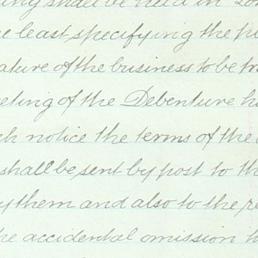 shall be held in
least specifying the
ature of the business to be tr
eeting of the Debenture h
ch notice the terms of the
shall be sent by post to th
y them and also to the re
he accidental omission t